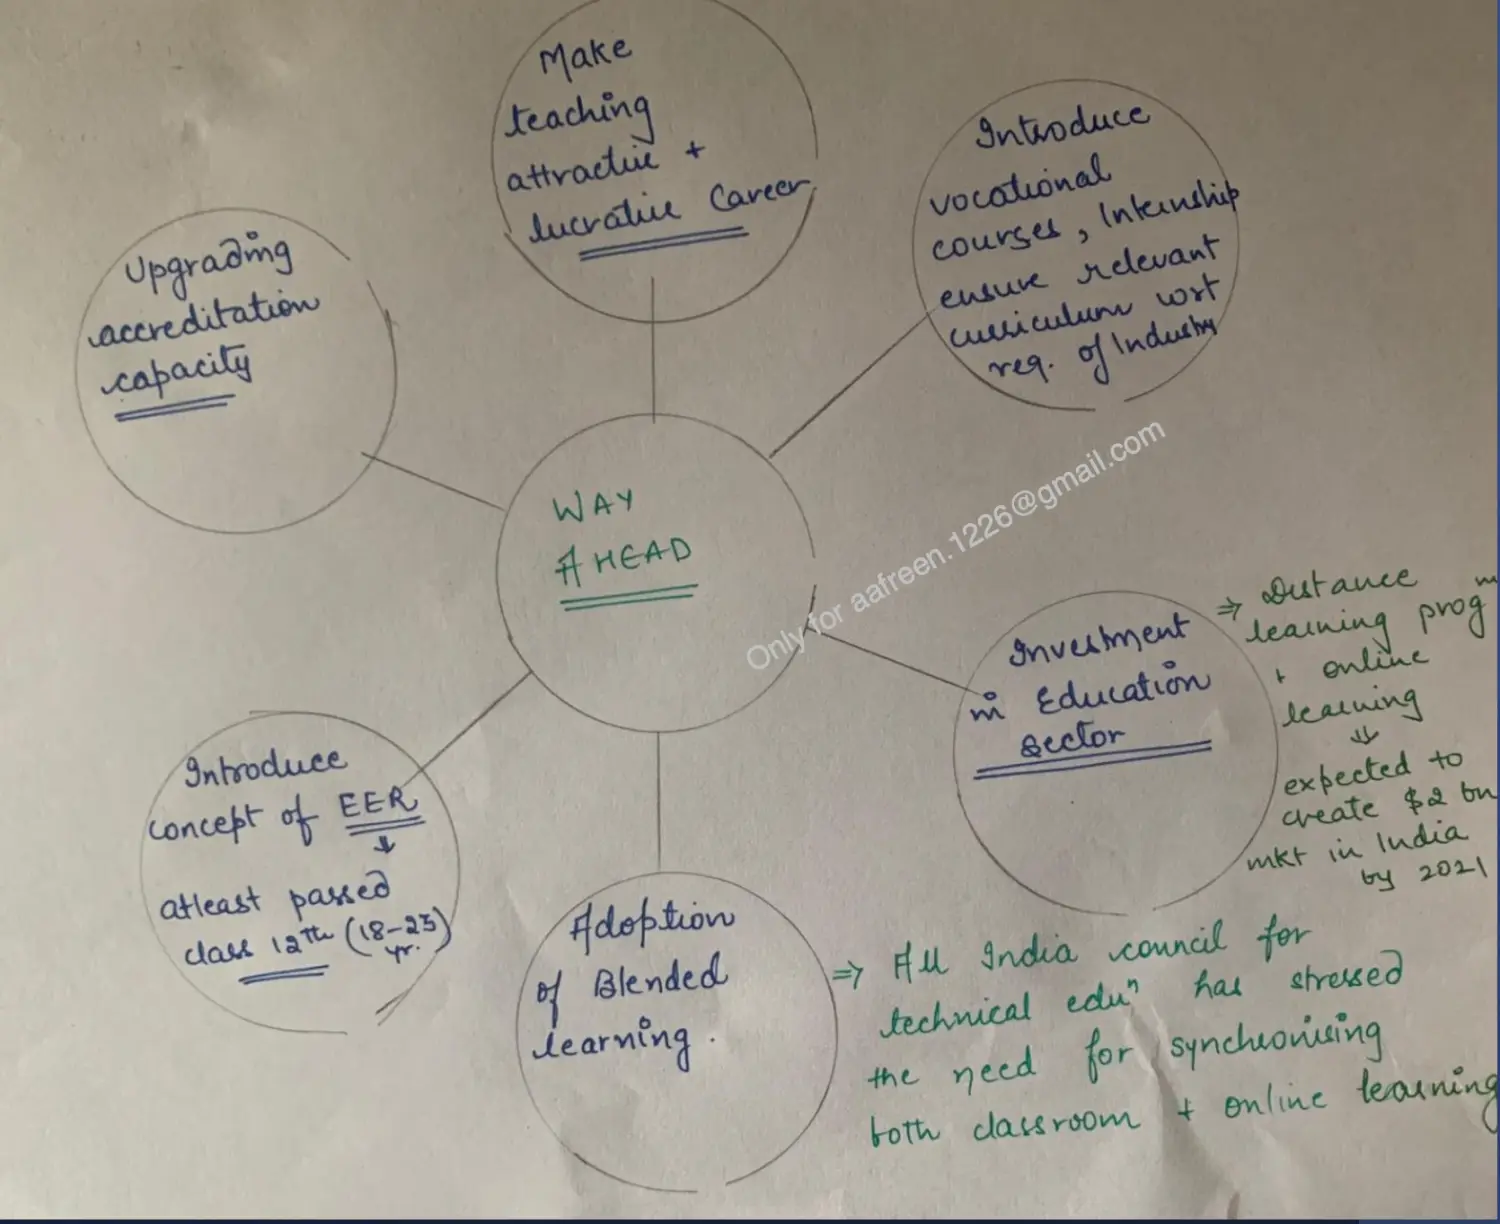 Make
teaching
attractive +
lucrative Career
Introduce
vocational
courses, Internship
ensure relevant
curriculum wrt
req. of Industry
Upgrading
accreditation
capacity
WAY
AHEAD
Only for aafreen.1226@gmail.com
Investment
in Education
sector
⇒ Distance
learning prog
+ online
learning
⇓
expected to
create $2 bn
mkt in India
by 2021
Introduce
concept of EER
↓
atleast passed
class 12th (18-23)
yr.
Adoption
of Blended
learning.
⇒ All India council for
technical eduⁿ has stressed
the need for synchronising
both classroom + online learning